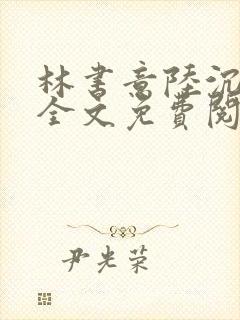 林书意陸沉
全文免費閱
尹光荣